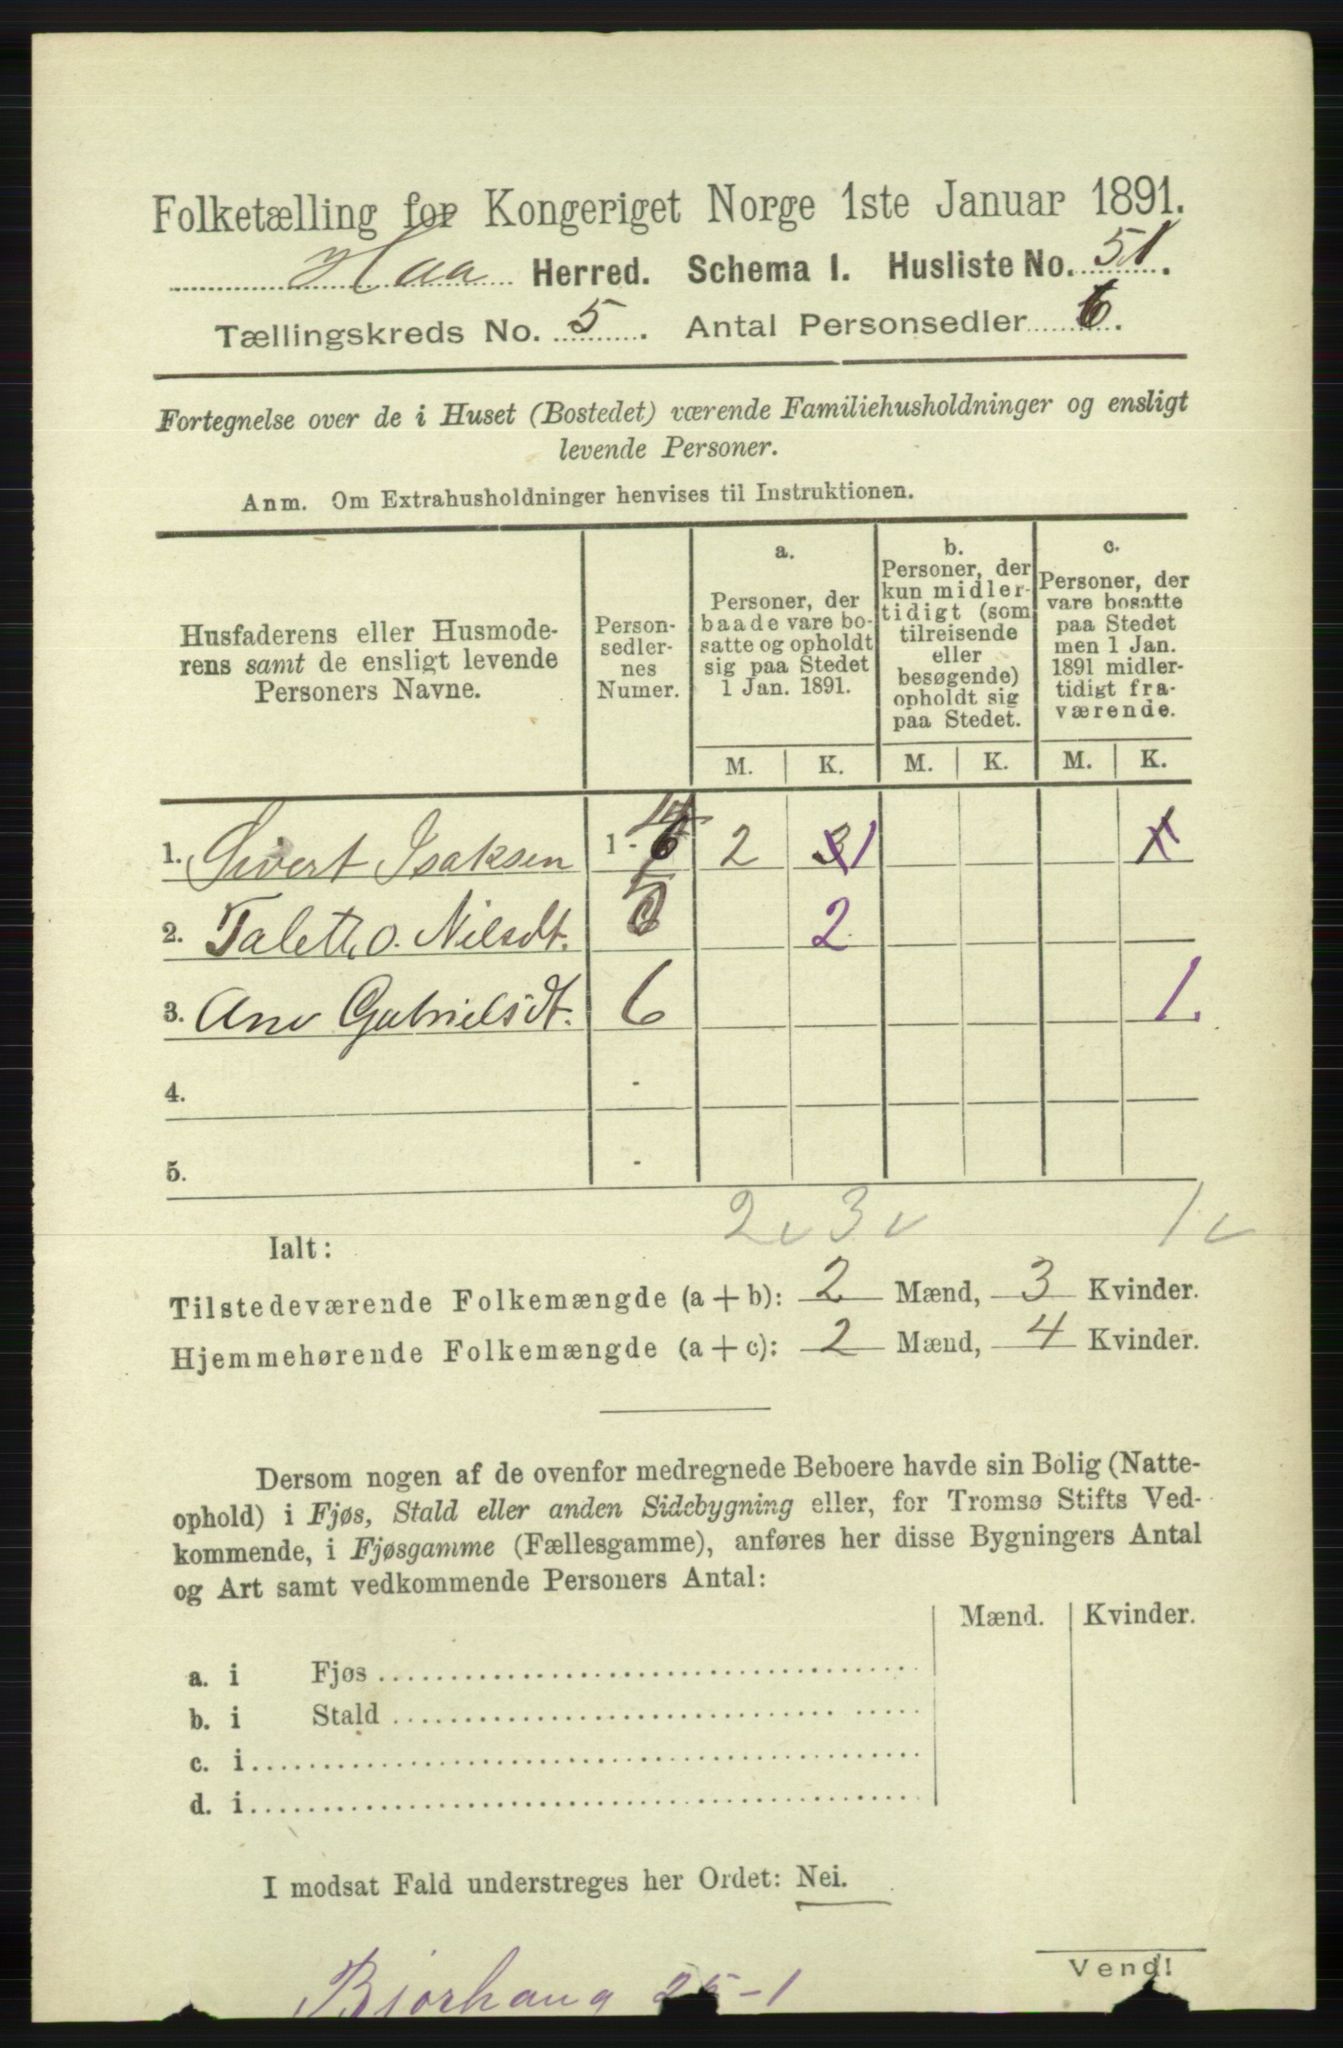 Folketælling for Kongeriget Norge 1ste Januar 1891.
Haa Herred. Schema 1. Husliste No. 51.
Tællingskreds No. 5. Antal Personsedler 6.
Fortegnelse over de i Huset (Bostedet) værende Familiehusholdninger og ensligt
levende Personer.
Anm. Om Extrahusholdninger henvises til Instruktionen.
Husfaderens eller Husmode-
rens samt de ensligt levende
Personers Navne.
Person-
sedler-
nes
Numer.
a.
Personer, der
baade vare bo-
satte og opholdt
sig paa Stedet
1 Jan. 1891.
b.
Personer, der
kun midler-
tidigt (som
tilreisende
eller
besøgende)
opholdt sig
paa Stedet.
c.
Personer, der
vare bosatte
paa Stedet
men 1 Jan.
1891 midler-
tidigt fra-
værende.
M. K. M. K. M. K.
1. Sivert Isaksen 1 - 2 3 1 1
2. Talette O. Nilsdt. 2
3. Ane Gabrielsdt. 6 1
4. -
5. -
2 v 3 v 1 v
Ialt:
Tilstedeværende Folkemængde (a + b): 2 Mænd, 3 Kvinder.
Hjemmehørende Folkemængde (a + c): 2 Mænd, 4 Kvinder.
Dersom nogen af de ovenfor medregnede Beboere havde sin Bolig (Natte-
ophold) i Fjøs, Stald eller anden Sidebygning eller, for Tromsø Stifts Ved-
kommende, i Fjøsgamme (Fællesgamme), anføres her disse Bygningers Antal
og Art samt vedkommende Personers Antal:
Mænd. Kvinder.
a. i Fjøs
b. i Stald
c. i
d. i
I modsat Fald understreges her Ordet: Nei.
Vend!
Bjorhaug 25-1